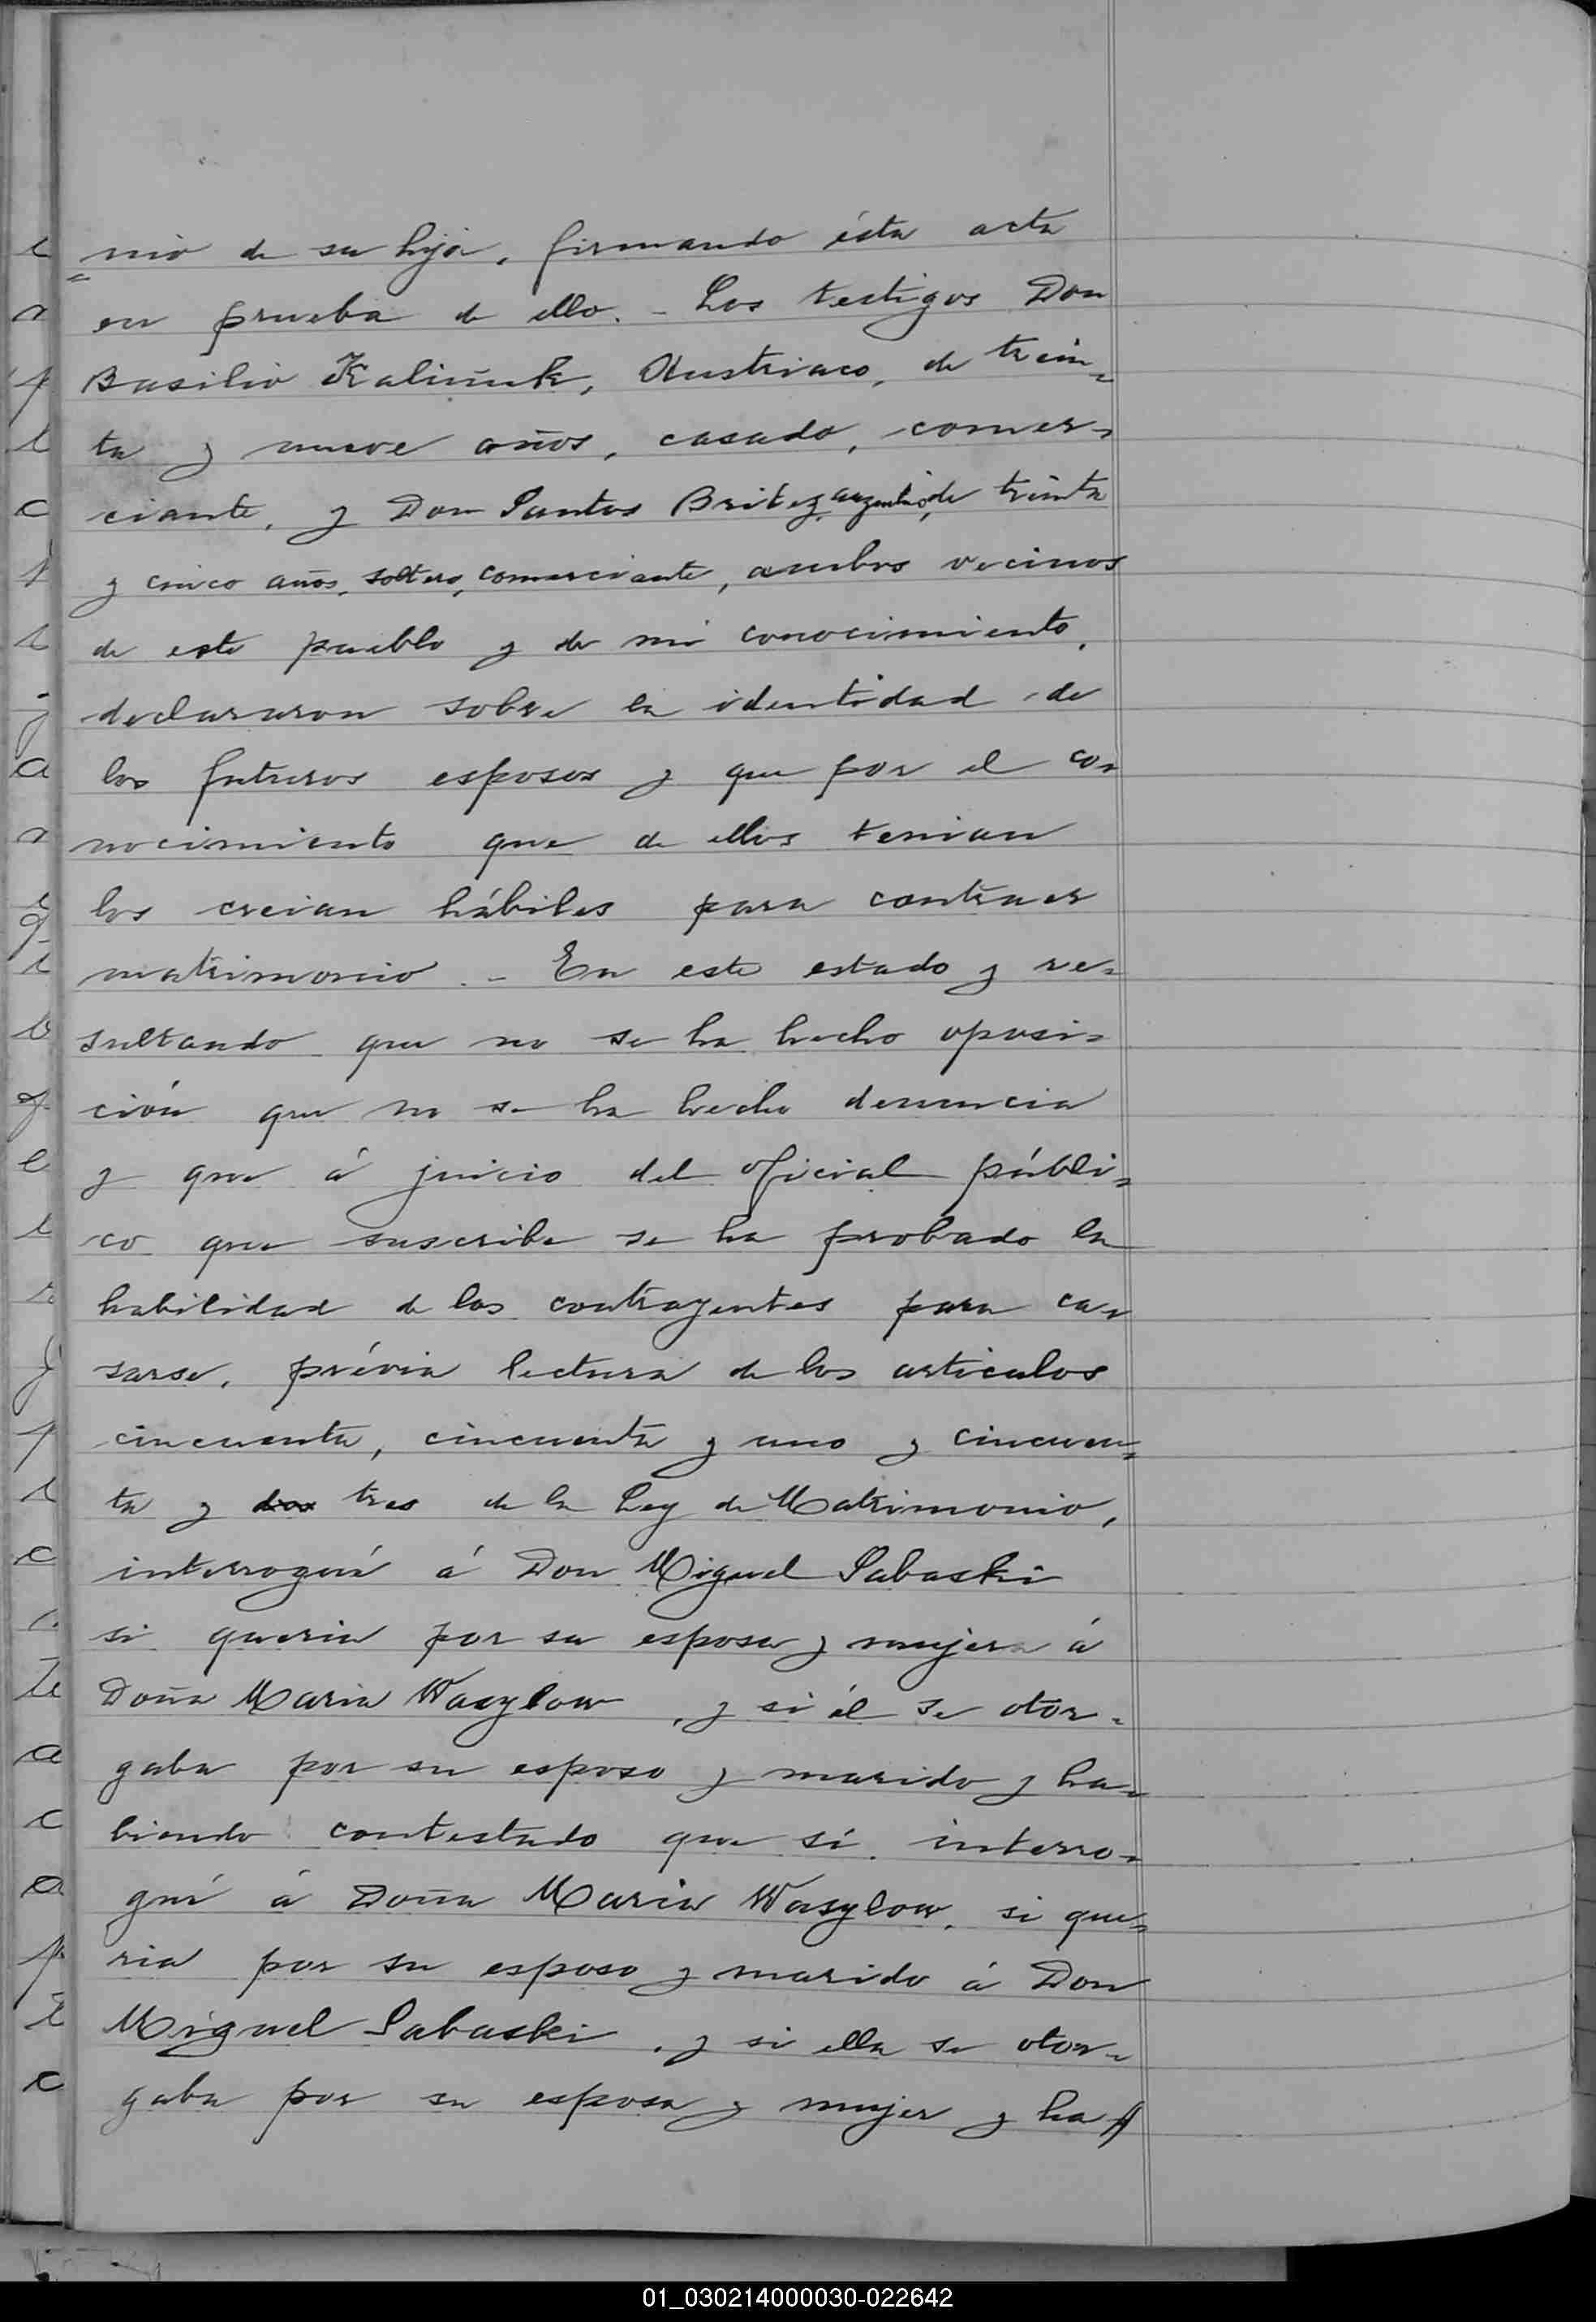 =nio de su hija, firmando ésta acta
en prueba de ello. - Los testigos Don
Basilio Kaliñuk, Austriaco, de trein=
ta y nueve años, casado, comer=
ciante, y Don Santos Britez, argentino, de treinta
y cinco años, soltero, comerciante, ambos vecinos
de este pueblo y de mi conocimiento,
declararon sobre la identidad de
los futuros esposos y que por el co=
nocimiento que de ellos tenian
los creian hábiles para contraer
matrimonio. - En este estado y re=
sultando que no se ha hecho oposi=
ción que no se ha hecho denuncia
y que á juicio del oficial públi=
co que suscribe se ha probado la
habilidad de los contrayentes para ca=
sarse, prévia lectura de los articulos
cincuenta, cincuenta y uno y cincuen=
ta y dos tres de la Ley de Matrimonio,
interrogué á Don Miguel Sabaski
si queria por su esposa y mujer á
Doña Maria Wasylow, y si él se otor=
gaba por su esposo y marido y ha=
biendo contestado que sí, interro=
gué á Doña Maria Wasylow, si que=
ria por su esposo y marido á Don
Miguel Sabaski, y si ella se otor=
gaba por su esposa y mujer y ha
01_030214000030-022642